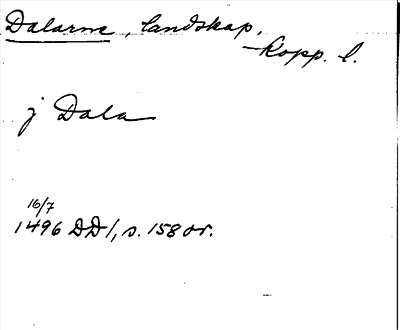 Dalarne, landskap,
Kopp. l.
j Dala
16/7
1496 DD 1, s. 158 or.